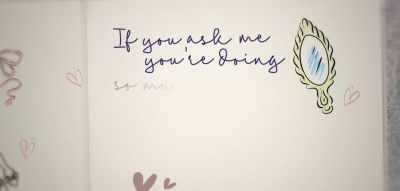 If you ask me
you're doing
so mu